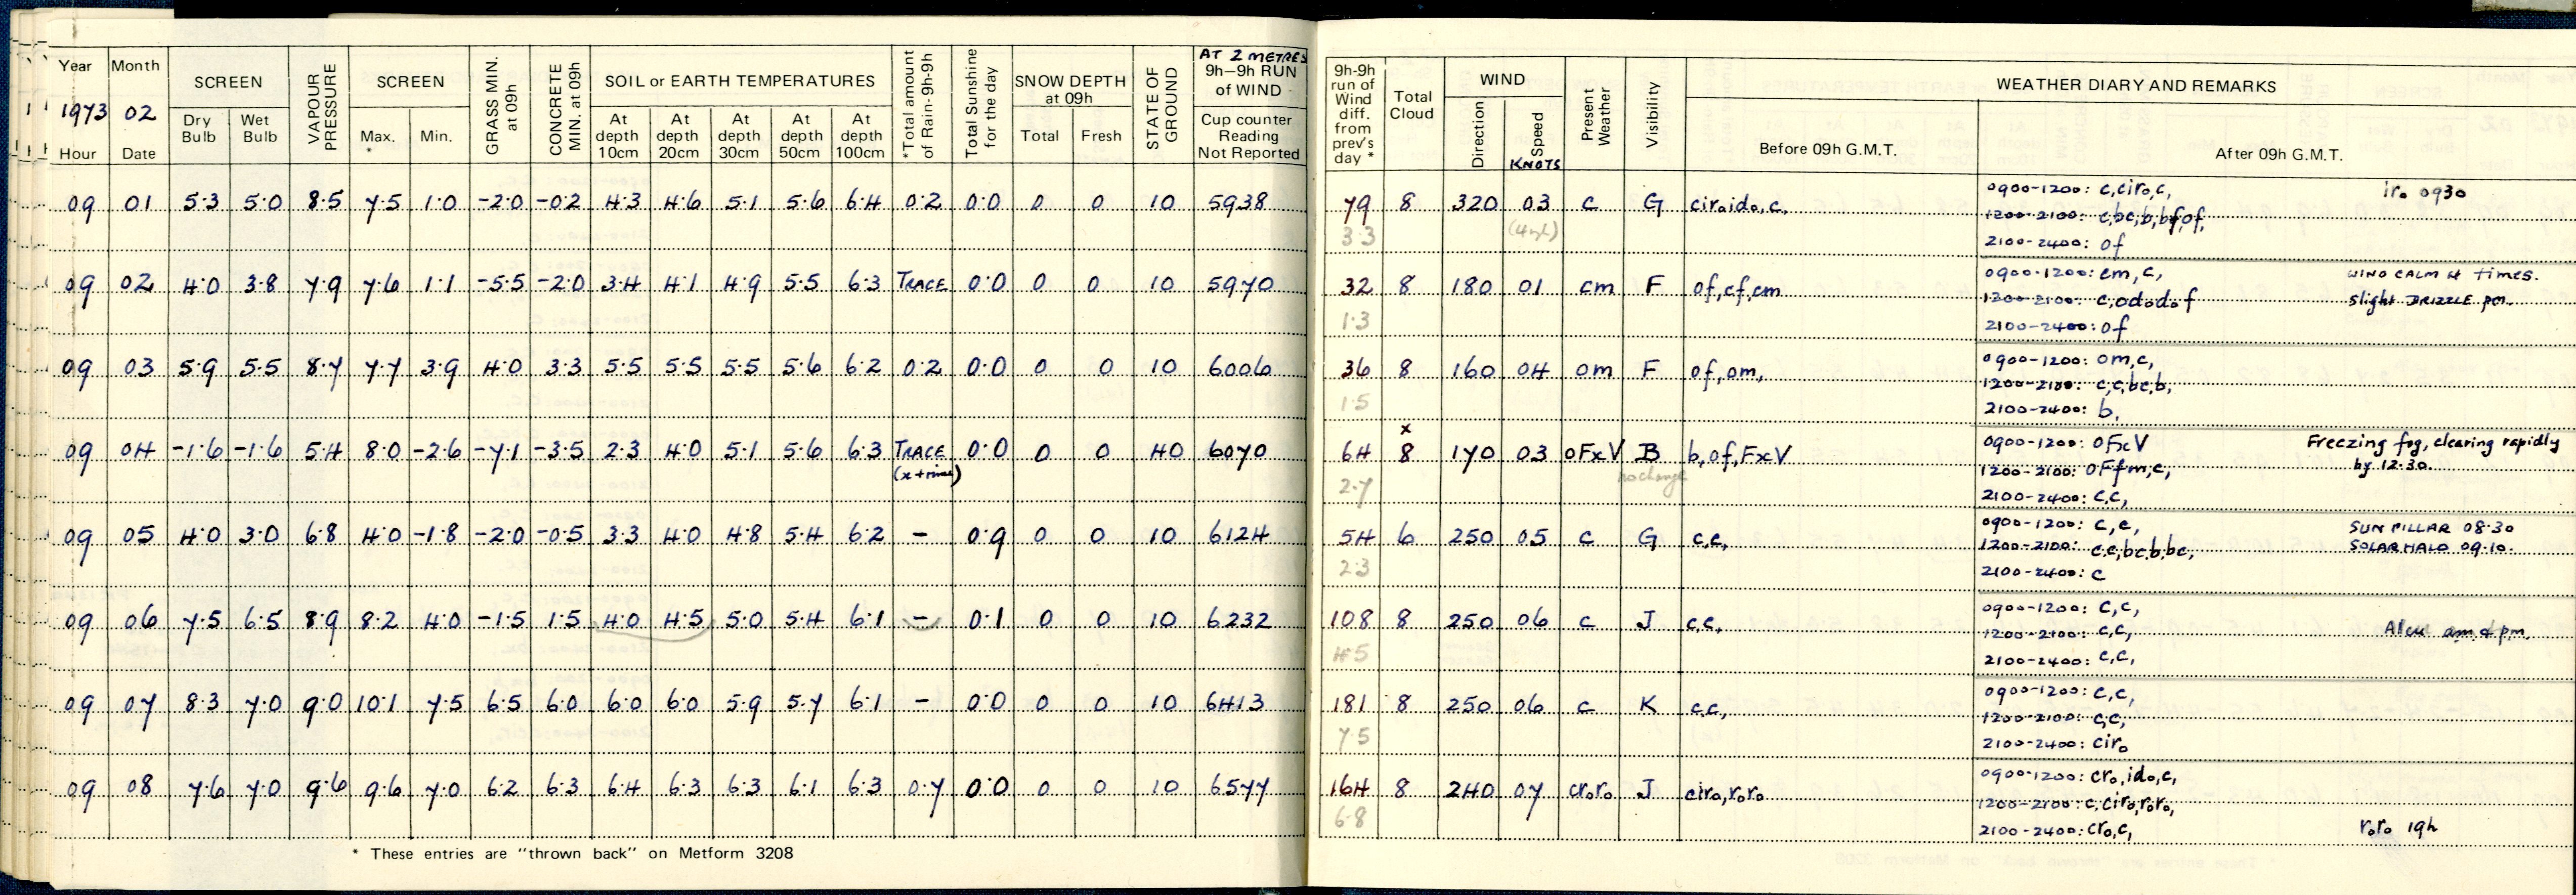 Year Month SCREEN VAPOUR PRESSURE SCREEN GRASS MIN. at 09h CONCRETE MIN. at 09h SOIL or EARTH TEMPERATURES *Total amount of Rain-9h-9h Total Sunshine for the day SNOW DEPTH at 09h STATE OF GROUND AT 2 METRES 9h-9h RUN of WIND
1973 02 Dry Bulb Wet Bulb Max. * Min. At depth 10cm At depth 20cm At depth 30cm At depth 50cm At depth 100cm Total Fresh Cup counter Reading Not Reported
Hour Date
09 01 5.3 5.0 8.5 7.5 1.0 -2.0 -0.2 4.3 4.6 5.1 5.6 6.4 0.2 0.0 0 0 10 5938
09 02 4.0 3.8 7.9 7.6 1.1 -5.5 -2.0 3.4 4.1 4.9 5.5 6.3 TRACE 0.0 0 0 10 5970
09 03 5.9 5.5 8.7 7.7 3.9 4.0 3.3 5.5 5.5 5.5 5.6 6.2 0.2 0.0 0 0 10 6006
09 04 -1.6 -1.6 5.4 8.0 -2.6 -7.1 -3.5 2.3 4.0 5.1 5.6 6.3 TRACE 0.0 0 0 40 6070
(x+rime)
09 05 4.0 3.0 6.8 4.0 -1.8 -2.0 -0.5 3.3 4.0 4.8 5.4 6.2 - 0.9 0 0 10 6124
09 06 7.5 6.5 8.9 8.2 4.0 -1.5 1.5 4.0 4.5 5.0 5.4 6.1 - 0.1 0 0 10 6232
09 07 8.3 7.0 9.0 10.1 7.5 6.5 6.0 6.0 6.0 5.9 5.7 6.1 - 0.0 0 0 10 6413
09 08 7.6 7.0 9.6 9.6 7.0 6.2 6.3 6.4 6.3 6.3 6.1 6.3 0.7 0.0 0 0 10 6577
* These entries are "thrown back" on Metform 3208
9h-9h run of Wind diff. from prev's day * Total Cloud WIND Present Weather Visibility WEATHER DIARY AND REMARKS
Direction Speed KNOTS Before 09h G.M.T. After 09h G.M.T.
79 8 320 03 c G ciroido,c, 0900-1200: c,ciro,c, iro 0930
3.3 1200-2100: c,bc,b,bf,of,
2100-2400: of
32 8 180 01 cm F of,cf,cm 0900-1200: cm,c, WIND CALM at times.
1.3 1200-2100: c,ododof slight DRIZZLE pm.
2100-2400: of
36 8 160 04 om F of,om, 0900-1200: om,c,
1.5 1200-2100: c,c,bc,b,
2100-2400: b,
x
64 8 170 03 oFxV B b,of,FxV 0900-1200: oFxV Freezing fog, clearing rapidly
2.7 no change 1200-2100: oFfm,c, by 12.30.
2100-2400: c,c,
54 6 250 05 c G c,c, 0900-1200: c,c, SUN PILLAR 08.30
2.3 1200-2100: c,c,bc,b,bc, SOLAR HALO 09.10.
2100-2400: c
108 8 250 06 c J c,c, 0900-1200: c,c,
4.5 1200-2100: c,c, am & pm.
2100-2400: c,c,
181 8 250 06 c K c,c, 0900-1200: c,c,
7.5 1200-2100: c,c,
2100-2400: ciro
164 8 240 07 croro J ciro,roro 0900-1200: cro,ido,c,
6.8 1200-2100: c,ciro,roro,
2100-2400: cro,c, roro 19h